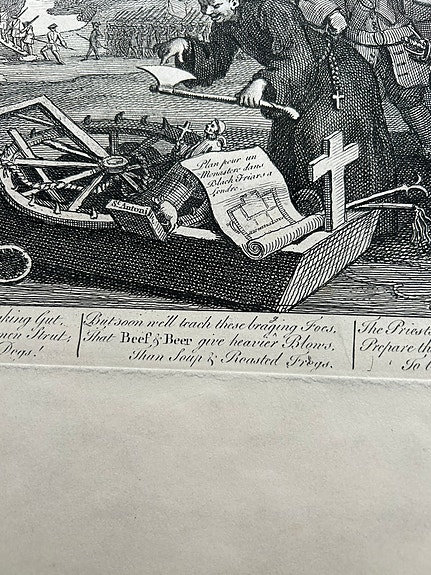 Plan pour un
Monastere dans
Black Friars a
Londre
St. Antoni
king Gut,
Strut,
Frogs!
But soon we'll teach these braging Foes,
That Beef & Beer give heavier Blows,
Than Soup & Roasted Frogs.
The Priests
Prepare th
To